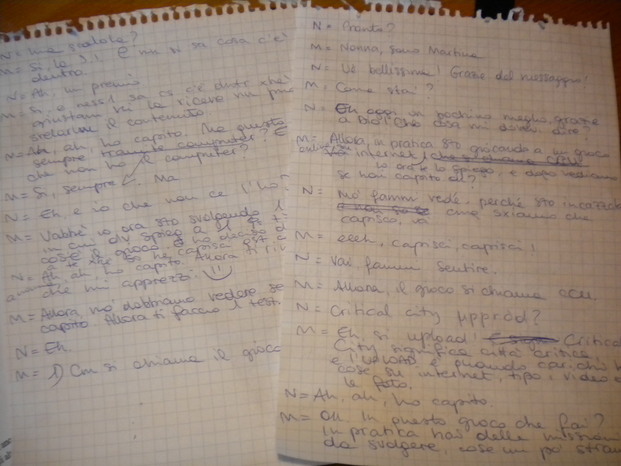 N = Una scatola?
M = Sì, la S.I. E non si sa cosa c'è
dentro.
N = Ah, un premio
M = Sì, e ness1 sa cs c'è dentr xké
giustam se la riceve non può
svelarne il contenuto
N = Ah, ah, ho capito. Ma questo
sempre tramite computer? E
che non ho il computer?
M = Sì, sempre. Ma
N = Eh, e io che non ce l'ho
M = Vabbè io ora sto svolgendo
in cui dv spiego a
cos'è il gioco. E ho deciso
N = Ah, ah, ho capito. Allora ti
che mi apprezzi.
M = Allora no' dobbiamo vedere se
capito. Allora ti faccio 1 test.
N = Eh.
M = 1) Cm si chiama il gioco
N = Pronto?
M = Nonna, sono Martina
N = Uè bellissima! Grazie del messaggio!
M = Come stai?
N = Eh oggi un pochino meglio, grazie
a Dio! Che cosa mi devi dire?
M = Allora, in pratica sto giocando a un gioco
internet che si chiama CCU
Io ora te lo spiego, e dopo vediamo
se hai capito ok?
N = Mo' fammi vede', perché sto incazzata
capisco, io
M = eeeh, capisci, capisci!
N = Vai fammi sentire.
M = Allora, il gioco si chiama CCU.
N = Critical city
M = Eh, sì upload! Critical
City significa città critica,
e l'upload è quando carichi
cose su internet, tipo i video o
le foto.
N = Ah, ah, ho capito.
M = Ok. In questo gioco che fai?
In pratica hai delle missioni
da svolgere, cose un po' strane